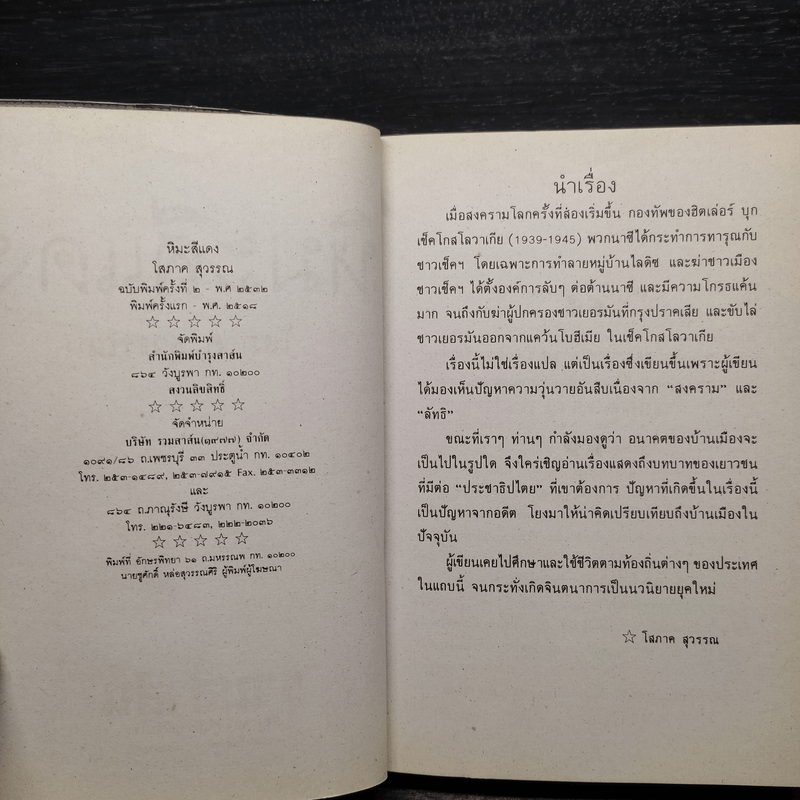 หิมะสีแดง
โสภาค สุวรรณ
ฉบับพิมพ์ครั้งที่ ๒ - พ.ศ ๒๕๓๒
พิมพ์ครั้งแรก - พ.ศ. ๒๕๑๘
☆ ☆ ☆ ☆ ☆
จัดพิมพ์
สำนักพิมพ์บำรุงสาส์น
๘๖๔ วังบูรพา กท. ๑๐๒๐๐
สงวนลิขสิทธิ์
☆ ☆ ☆ ☆ ☆
จัดจำหน่าย
บริษัท รวมสาส์น(๑๙๗๗) จำกัด
๑๐๙๑/๘๖ ถ.เพชรบุรี ๓๓ ประตูน้ำ กท. ๑๐๔๐๒
โทร. ๒๕๓-๑๔๘๙, ๒๕๓-๗๙๑๕ Fax. ๒๕๓-๓๓๑๒
และ
๘๖๔ ถ.ภาณุรังษี วังบูรพา กท. ๑๐๒๐๐
โทร. ๒๒๑-๖๔๘๓, ๒๒๒-๒๐๓๖
☆ ☆ ☆ ☆ ☆
พิมพ์ที่ อักษรพิทยา ๖๑ ถ.มหรรณพ กท. ๑๐๒๐๐
นายชูศักดิ์ หล่อสุวรรณศิริ ผู้พิมพ์ผู้โฆษณา
นำเรื่อง
เมื่อสงครามโลกครั้งที่สองเริ่มขึ้น กองทัพของฮิตเล่อร์ บุก
เช็คโกสโลวาเกีย (1939-1945) พวกนาซีได้กระทำการทารุณกับ
ชาวเช็คฯ โดยเฉพาะการทำลายหมู่บ้านไลดิซ และฆ่าชาวเมือง
ชาวเช็คฯ ได้ตั้งองค์การลับๆ ต่อต้านนาซี และมีความโกรธแค้น
มาก จนถึงกับฆ่าผู้ปกครองชาวเยอรมันที่กรุงปราคเลีย และขับไล่
ชาวเยอรมันออกจากแคว้นโบฮีเมีย ในเช็คโกสโลวาเกีย
เรื่องนี้ไม่ใช่เรื่องแปล แต่เป็นเรื่องซึ่งเขียนขึ้นเพราะผู้เขียน
ได้มองเห็นปัญหาความวุ่นวายอันสืบเนื่องจาก “สงคราม” และ
“ลัทธิ”
ขณะที่เราๆ ท่านๆ กำลังมองดูว่า อนาคตของบ้านเมืองจะ
เป็นไปในรูปใด จึงใคร่เชิญอ่านเรื่องแสดงถึงบทบาทของเยาวชน
ที่มีต่อ “ประชาธิปไตย” ที่เขาต้องการ ปัญหาที่เกิดขึ้นในเรื่องนี้
เป็นปัญหาจากอดีต โยงมาให้น่าคิดเปรียบเทียบถึงบ้านเมืองใน
ปัจจุบัน
ผู้เขียนเคยไปศึกษาและใช้ชีวิตตามท้องถิ่นต่างๆ ของประเทศ
ในแถบนี้ จนกระทั่งเกิดจินตนาการเป็นนวนิยายยุคใหม่
☆ โสภาค สุวรรณ